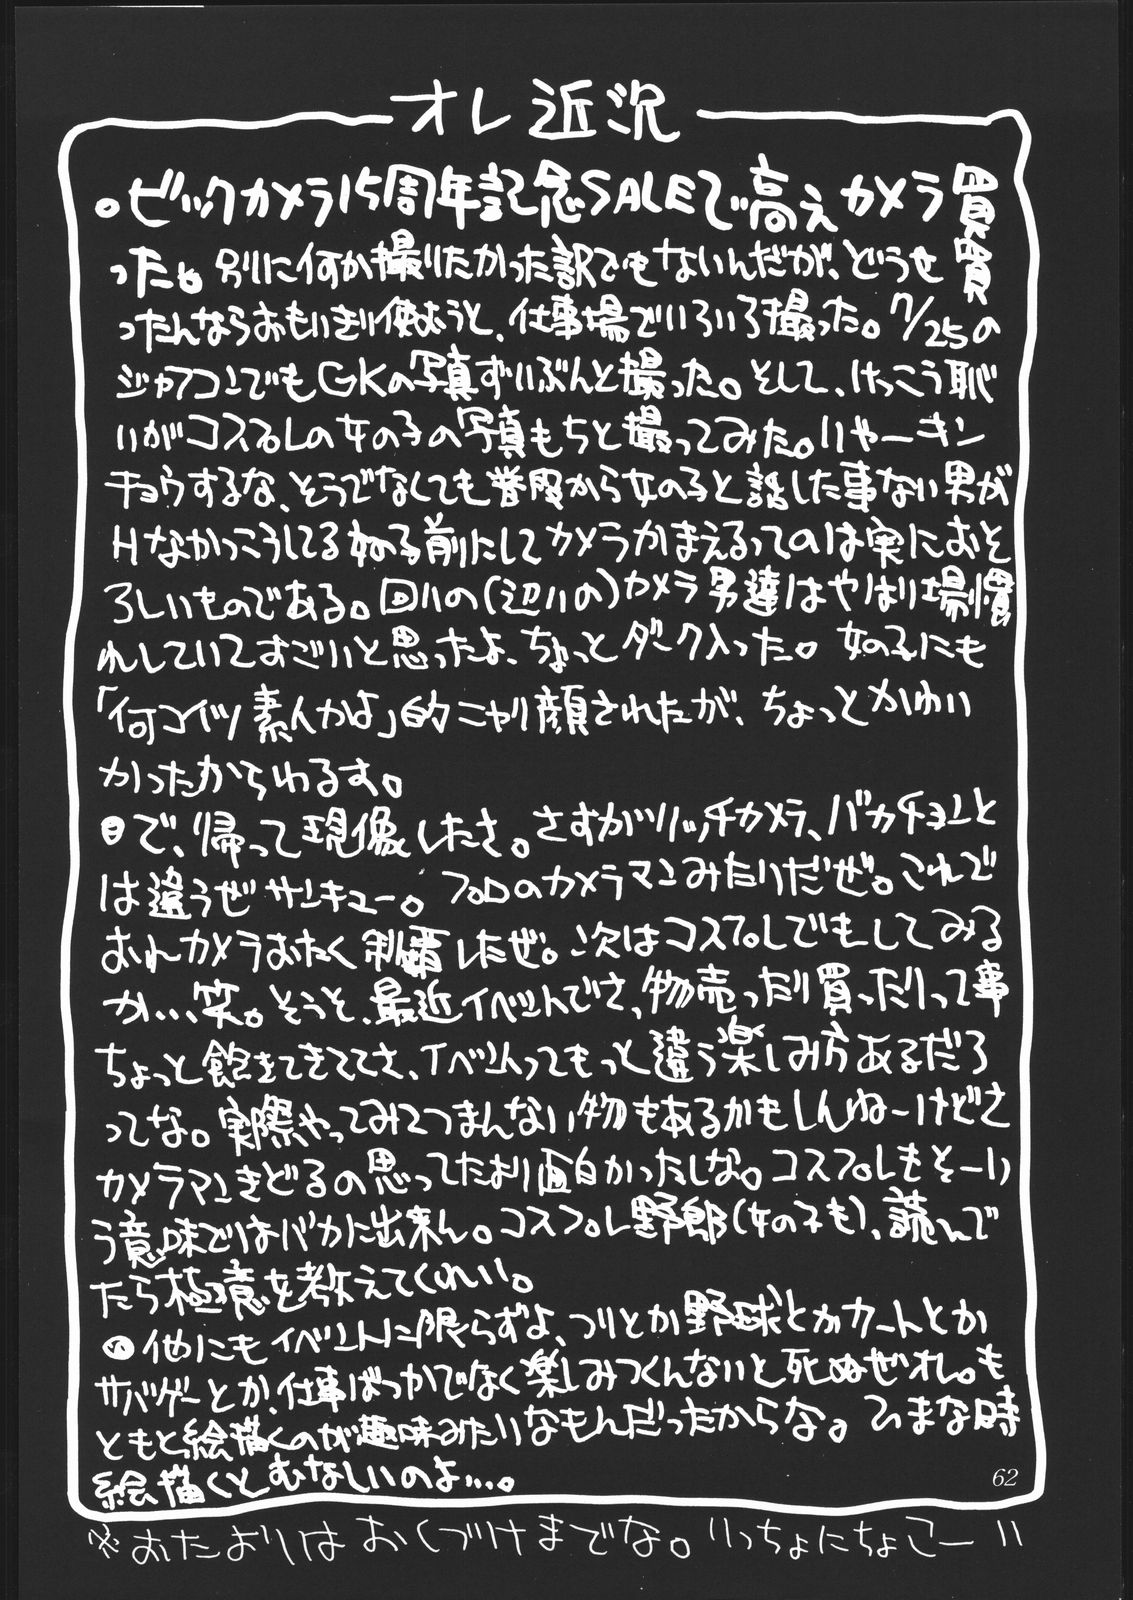 オレ近況
・ビックカメラ15周年記念SALEで高えカメラ買
った。別に何か撮りたかった訳でもないんだが、どうせ買
ったんならおもいきり使おうと、仕事場でいろいろ撮った。7/25の
ジャフコンでもGKの写真ずいぶんと撮った。そして、けっこう恥
いがコスプレの女の子の写真もちと撮ってみた。いやーキン
チョウするな、そうでなくても普段から女の子と話した事ない男が
Hなかっこうしてる女の子前にしてカメラかまえるってのは実におそ
ろしいものである。回りの(辺りの)カメラ男達はやはり場慣
れしていてすごいと思ったよ、ちょっとダーク入った。女の子にも
「何コイツ素人かよ」的ニヤリ顔されたが、ちょっとかゆい
かったからわるす。
で、帰って現像したさ。さすがツリッチカメラ、バカチョンと
は違うぜサンキュー。プロのカメラマンみたいだぜ。これで
おれカメラおたく制覇したぜ。次はコスプレでもしてみる
か…笑。そうそ、最近イベントでさ、物売ったり買ったりって事
ちょっと飽きてきててさ、イベントってもっと違う楽しみ方あるだろ
ってな。実際やってみてつまんない物もあるかもしんねーけどさ
カメラマンきどるの思ってたより面白かったしな。コスプレもそーい
う意味ではバカに出来ん。コスプレ野郎(女の子も)、読んで
たら極意を教えてくれい。
他にもイベントに限らずよ、つりとか野球とかカートとか
サバゲーとか、仕事ばっかでなく楽しみつくんないと死ぬぜオレ。も
ともと絵描くのが趣味みたいなもんだったからな。ひまな時
絵描くとむなしいのよ…。
62
※おたよりはおくづけまでな。いっちょにちょこーい